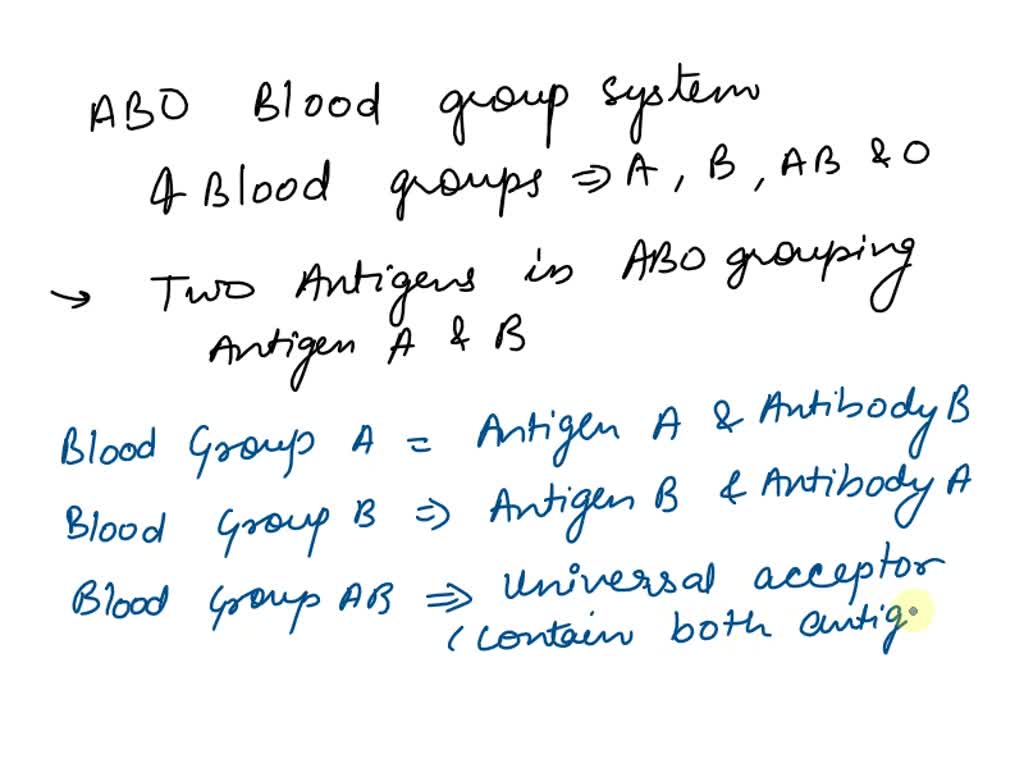 ABO Blood group system
4 Blood groups ⇒ A, B, AB & O
→ Two Antigens in ABO grouping
Antigen A & B
Blood Group A = Antigen A & Antibody B
Blood Group B ⇒ Antigen B & Antibody A
Blood Group AB ⇒ Universal acceptor
(contain both antig